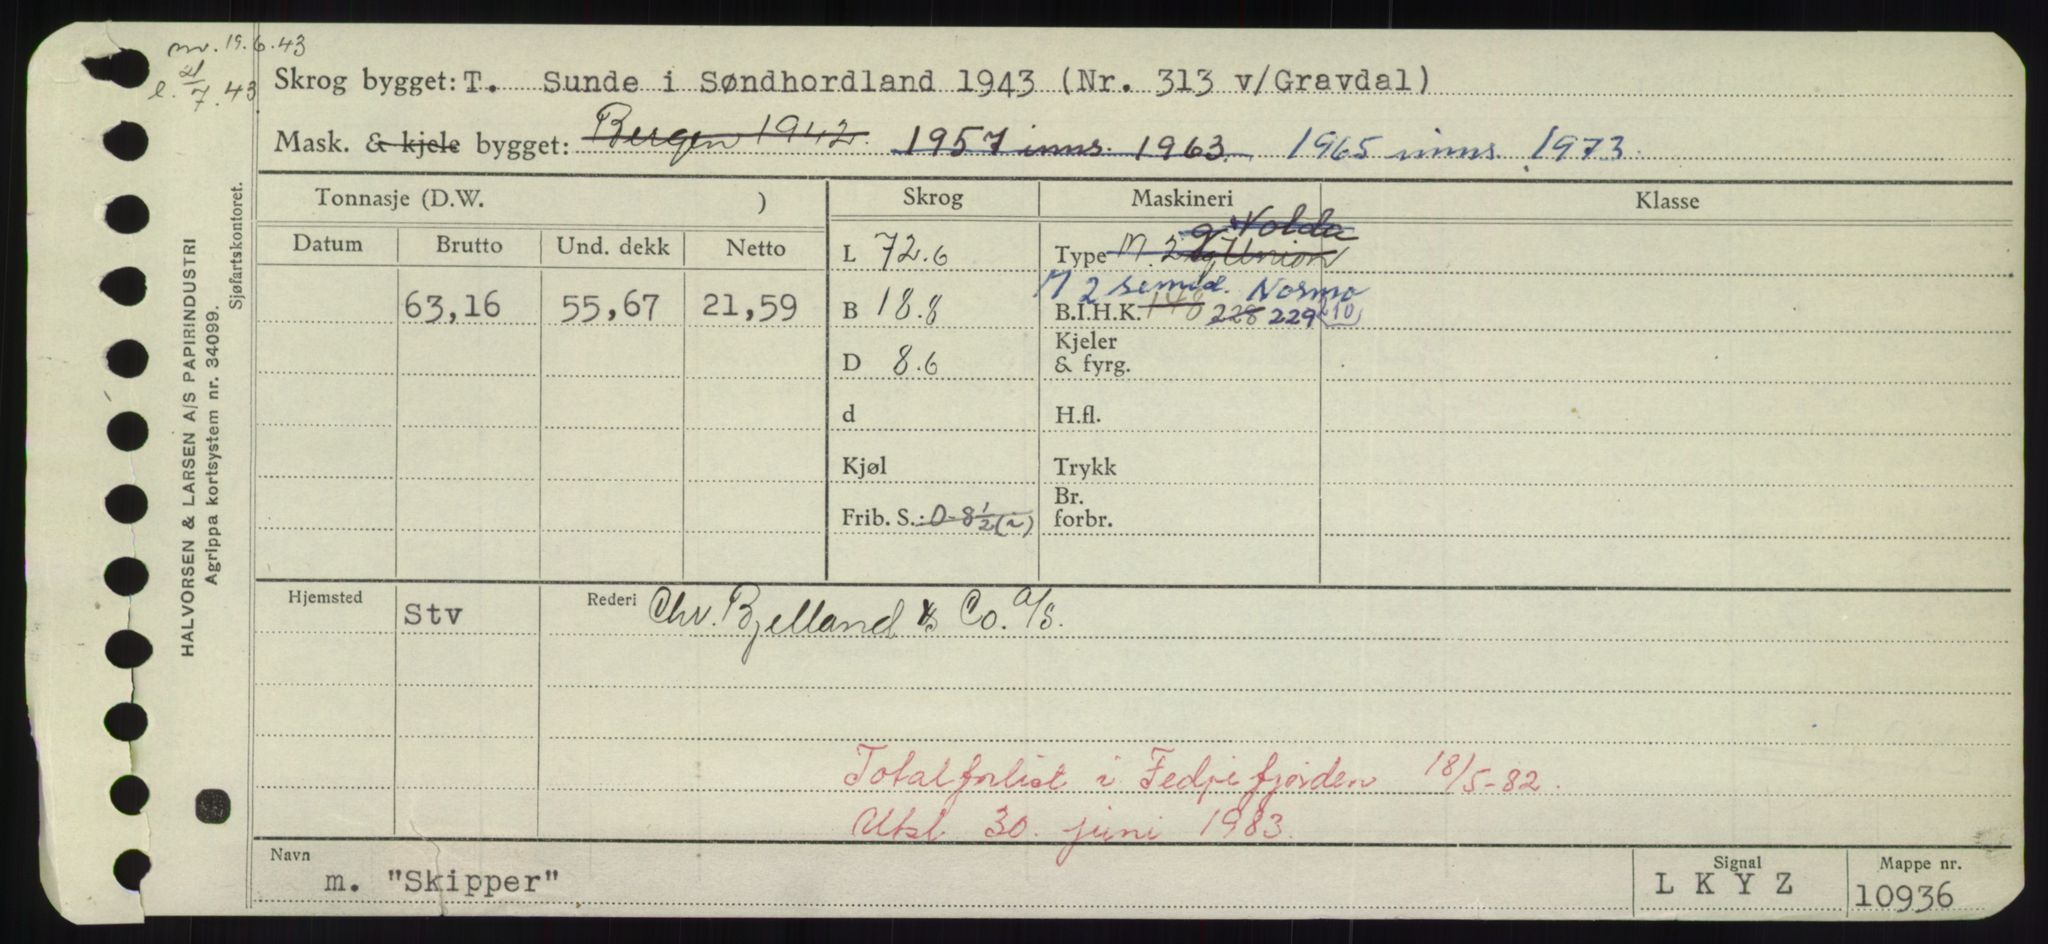 mv. 19.6.43
e. 21/7.43
Skrog bygget: T. Sunde i Søndhordland 1943 (Nr. 313 v/Gravdal)
Mask. & kjele bygget: Bergen 1942. 1957 inns. 1963. 1965 inns. 1973.
Tonnasje (D.W. ) Skrog Maskineri Klasse
Datum Brutto Und. dekk Netto
63,16 55,67 21,59
L 72.6
B 18.8
D 8.6
d
Kjøl
Frib. S.: 0-8½(2)
Volda
Type M. 2 Union
M 2 semid. Normo
B.I.H.K. 148 228 229 (10)
Kjeler
& fyrg.
H.fl.
Trykk
Br.
forbr.
Hjemsted Stv Rederi Chr. Bjelland & Co. A/S.
Totalforlist i Fedjefjorden 18/5-82.
Utsl. 30. juni 1983.
Navn m. "Skipper"
Signal L K Y Z
Mappe nr. 10936
HALVORSEN & LARSEN A/S PAPIRINDUSTRI
Agrippa kortsystem nr. 34099.
Sjøfartskontoret.